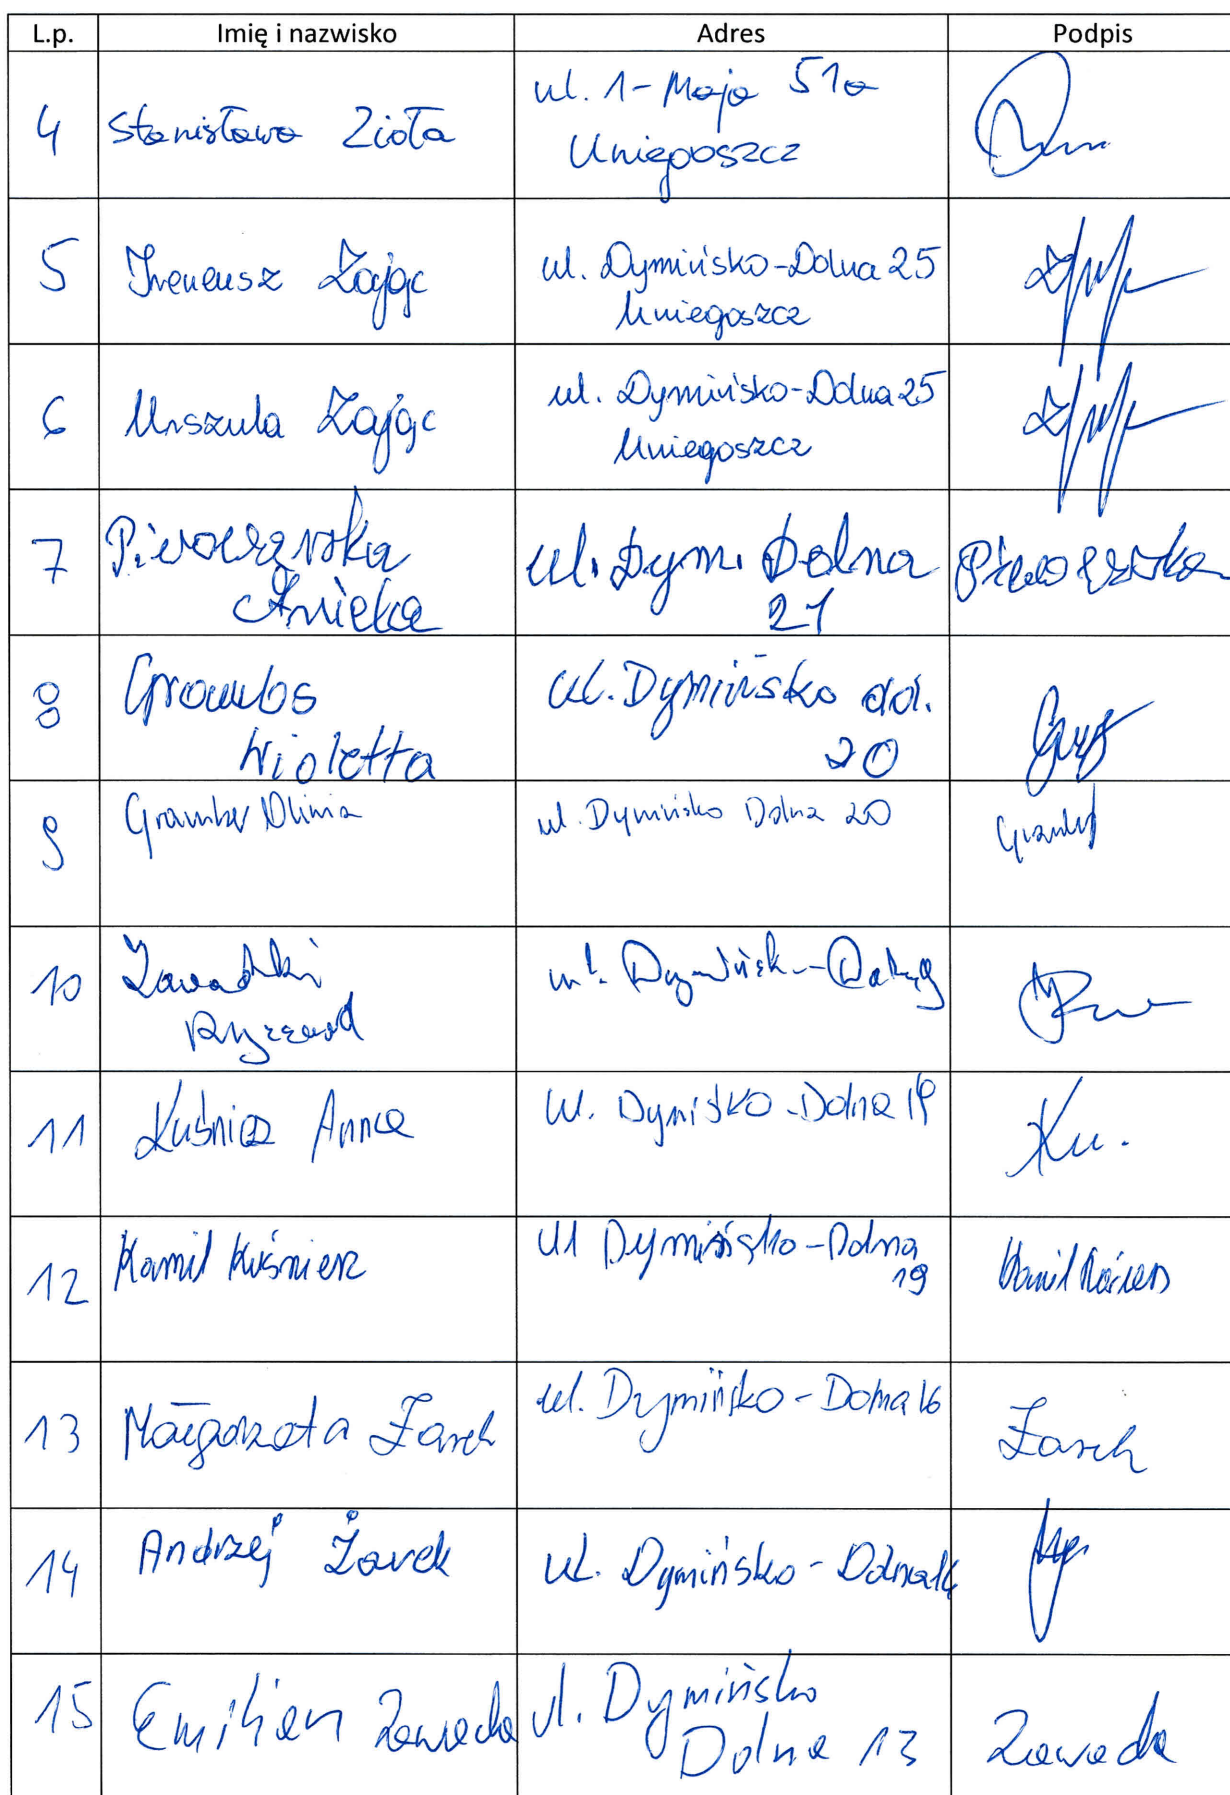 L.p. Imię i nazwisko Adres Podpis
4 Stanisława Zioła ul. 1-Maja 51a
Uniegoszcz
5 Ireneusz Zając ul. Dymińsko-Dolna 25
Uniegoszcz
6 Urszula Zając ul. Dymińsko-Dolna 25
Uniegoszcz
7 ul. Dym. Dolna
Aniela 21
8 ul. Dymińsko dol.
Wioletta 20
9 ul. Dymińsko Dolna 20
10 Zawadzki
Ryszard
11 Kuśnierz Anna ul. Dymisko-Dolna 19 Ku.
12 Kamil Kuśnierz Ul Dymińsko-Dolna
19
13 Małgorzata Żarek ul. Dymińsko-Dolna 16 Żarek
14 Andrzej Żarek ul. Dymińsko-Dolna 16
15 Emilian Zawada ul. Dymińsko
Dolna 13 Zawada